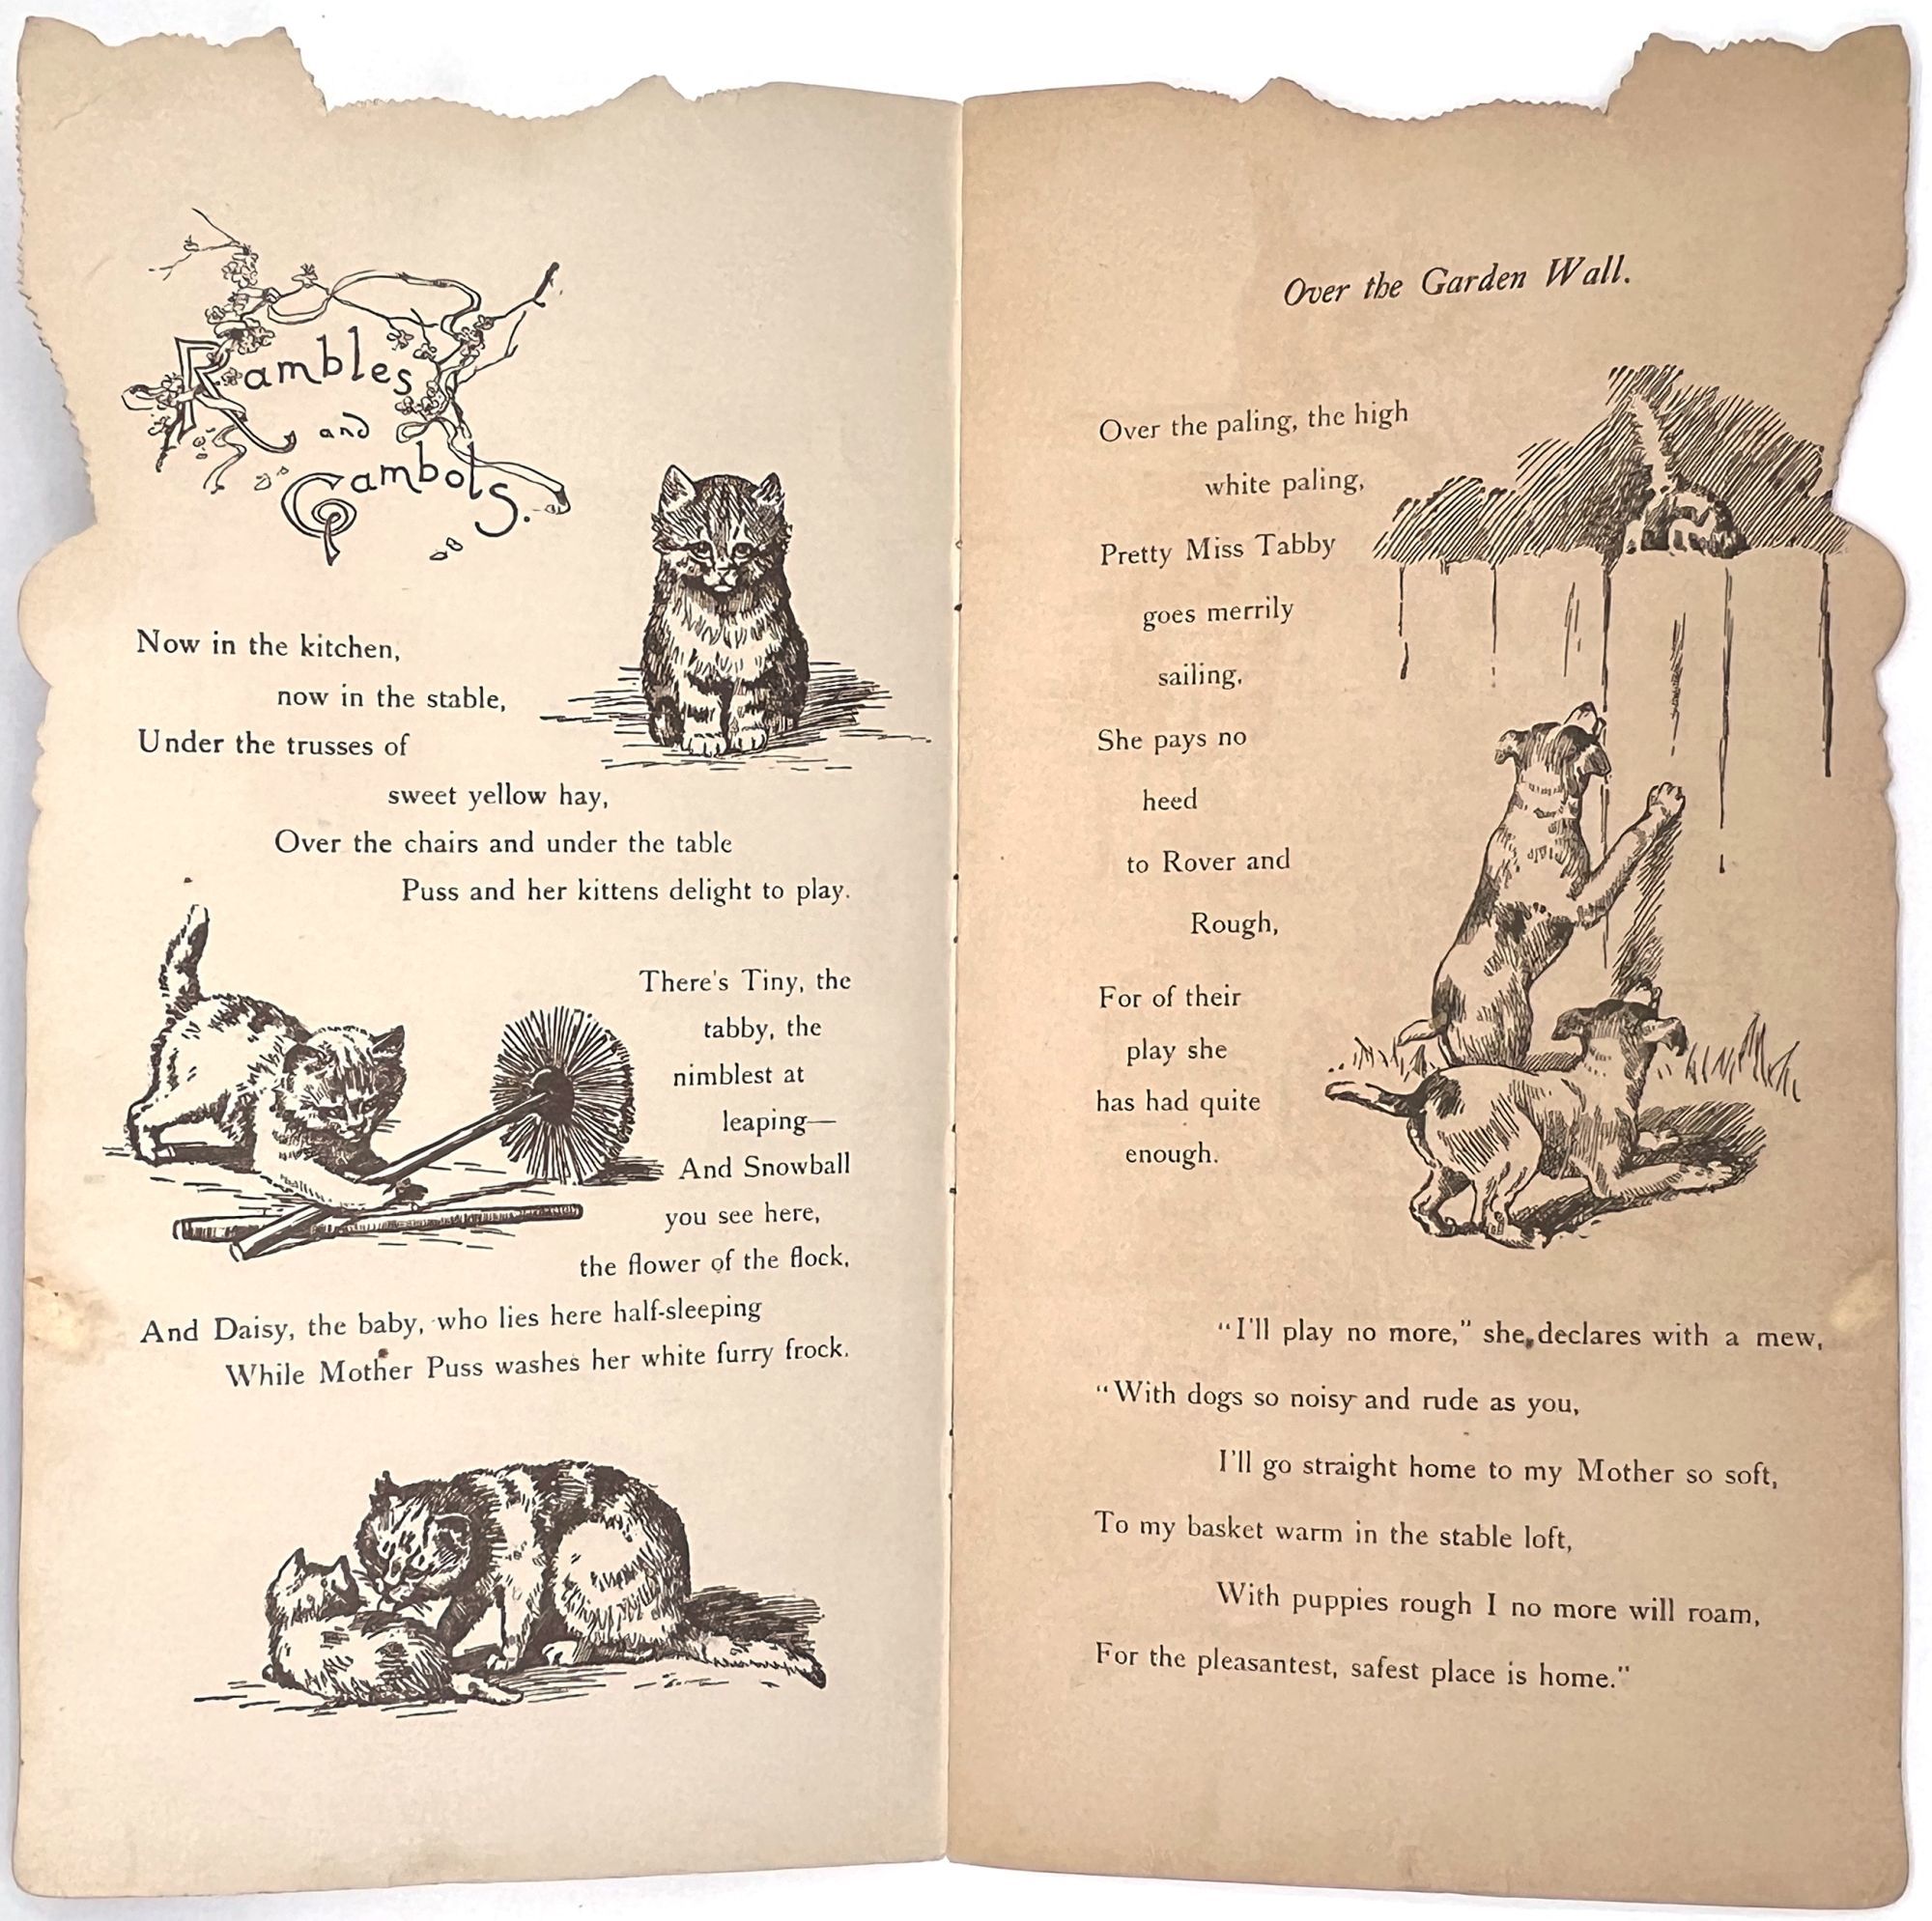 Rambles
and
Gambols.
Now in the kitchen,
now in the stable,
Under the trusses of
sweet yellow hay,
Over the chairs and under the table
Puss and her kittens delight to play.
There's Tiny, the
tabby, the
nimblest at
leaping—
And Snowball
you see here,
the flower of the flock,
And Daisy, the baby, who lies here half-sleeping
While Mother Puss washes her white furry frock.
Over the Garden Wall.
Over the paling, the high
white paling,
Pretty Miss Tabby
goes merrily
sailing,
She pays no
heed
to Rover and
Rough,
For of their
play she
has had quite
enough.
"I'll play no more," she declares with a mew,
"With dogs so noisy and rude as you,
I'll go straight home to my Mother so soft,
To my basket warm in the stable loft,
With puppies rough I no more will roam,
For the pleasantest, safest place is home."